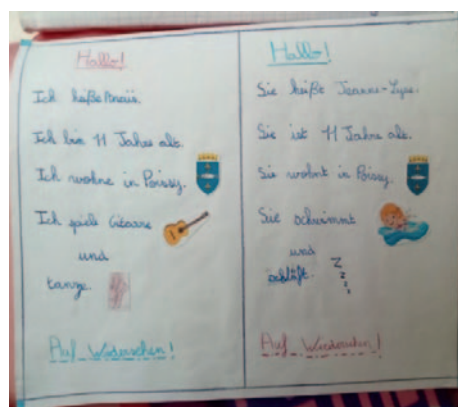 Hallo!
Ich heiße Anaïs.
Ich bin 11 Jahre alt.
Ich wohne in Poissy.
Ich spiele Gitarre
und
tanze.
Auf Wiedersehen!
Hallo!
Sie heiße Jeanne-Lyse.
Sie ist 11 Jahre alt.
Sie wohnt in Poissy.
Sie schwimmt
und
schläft.
Z
z
z
z
Auf Wiedersehen!